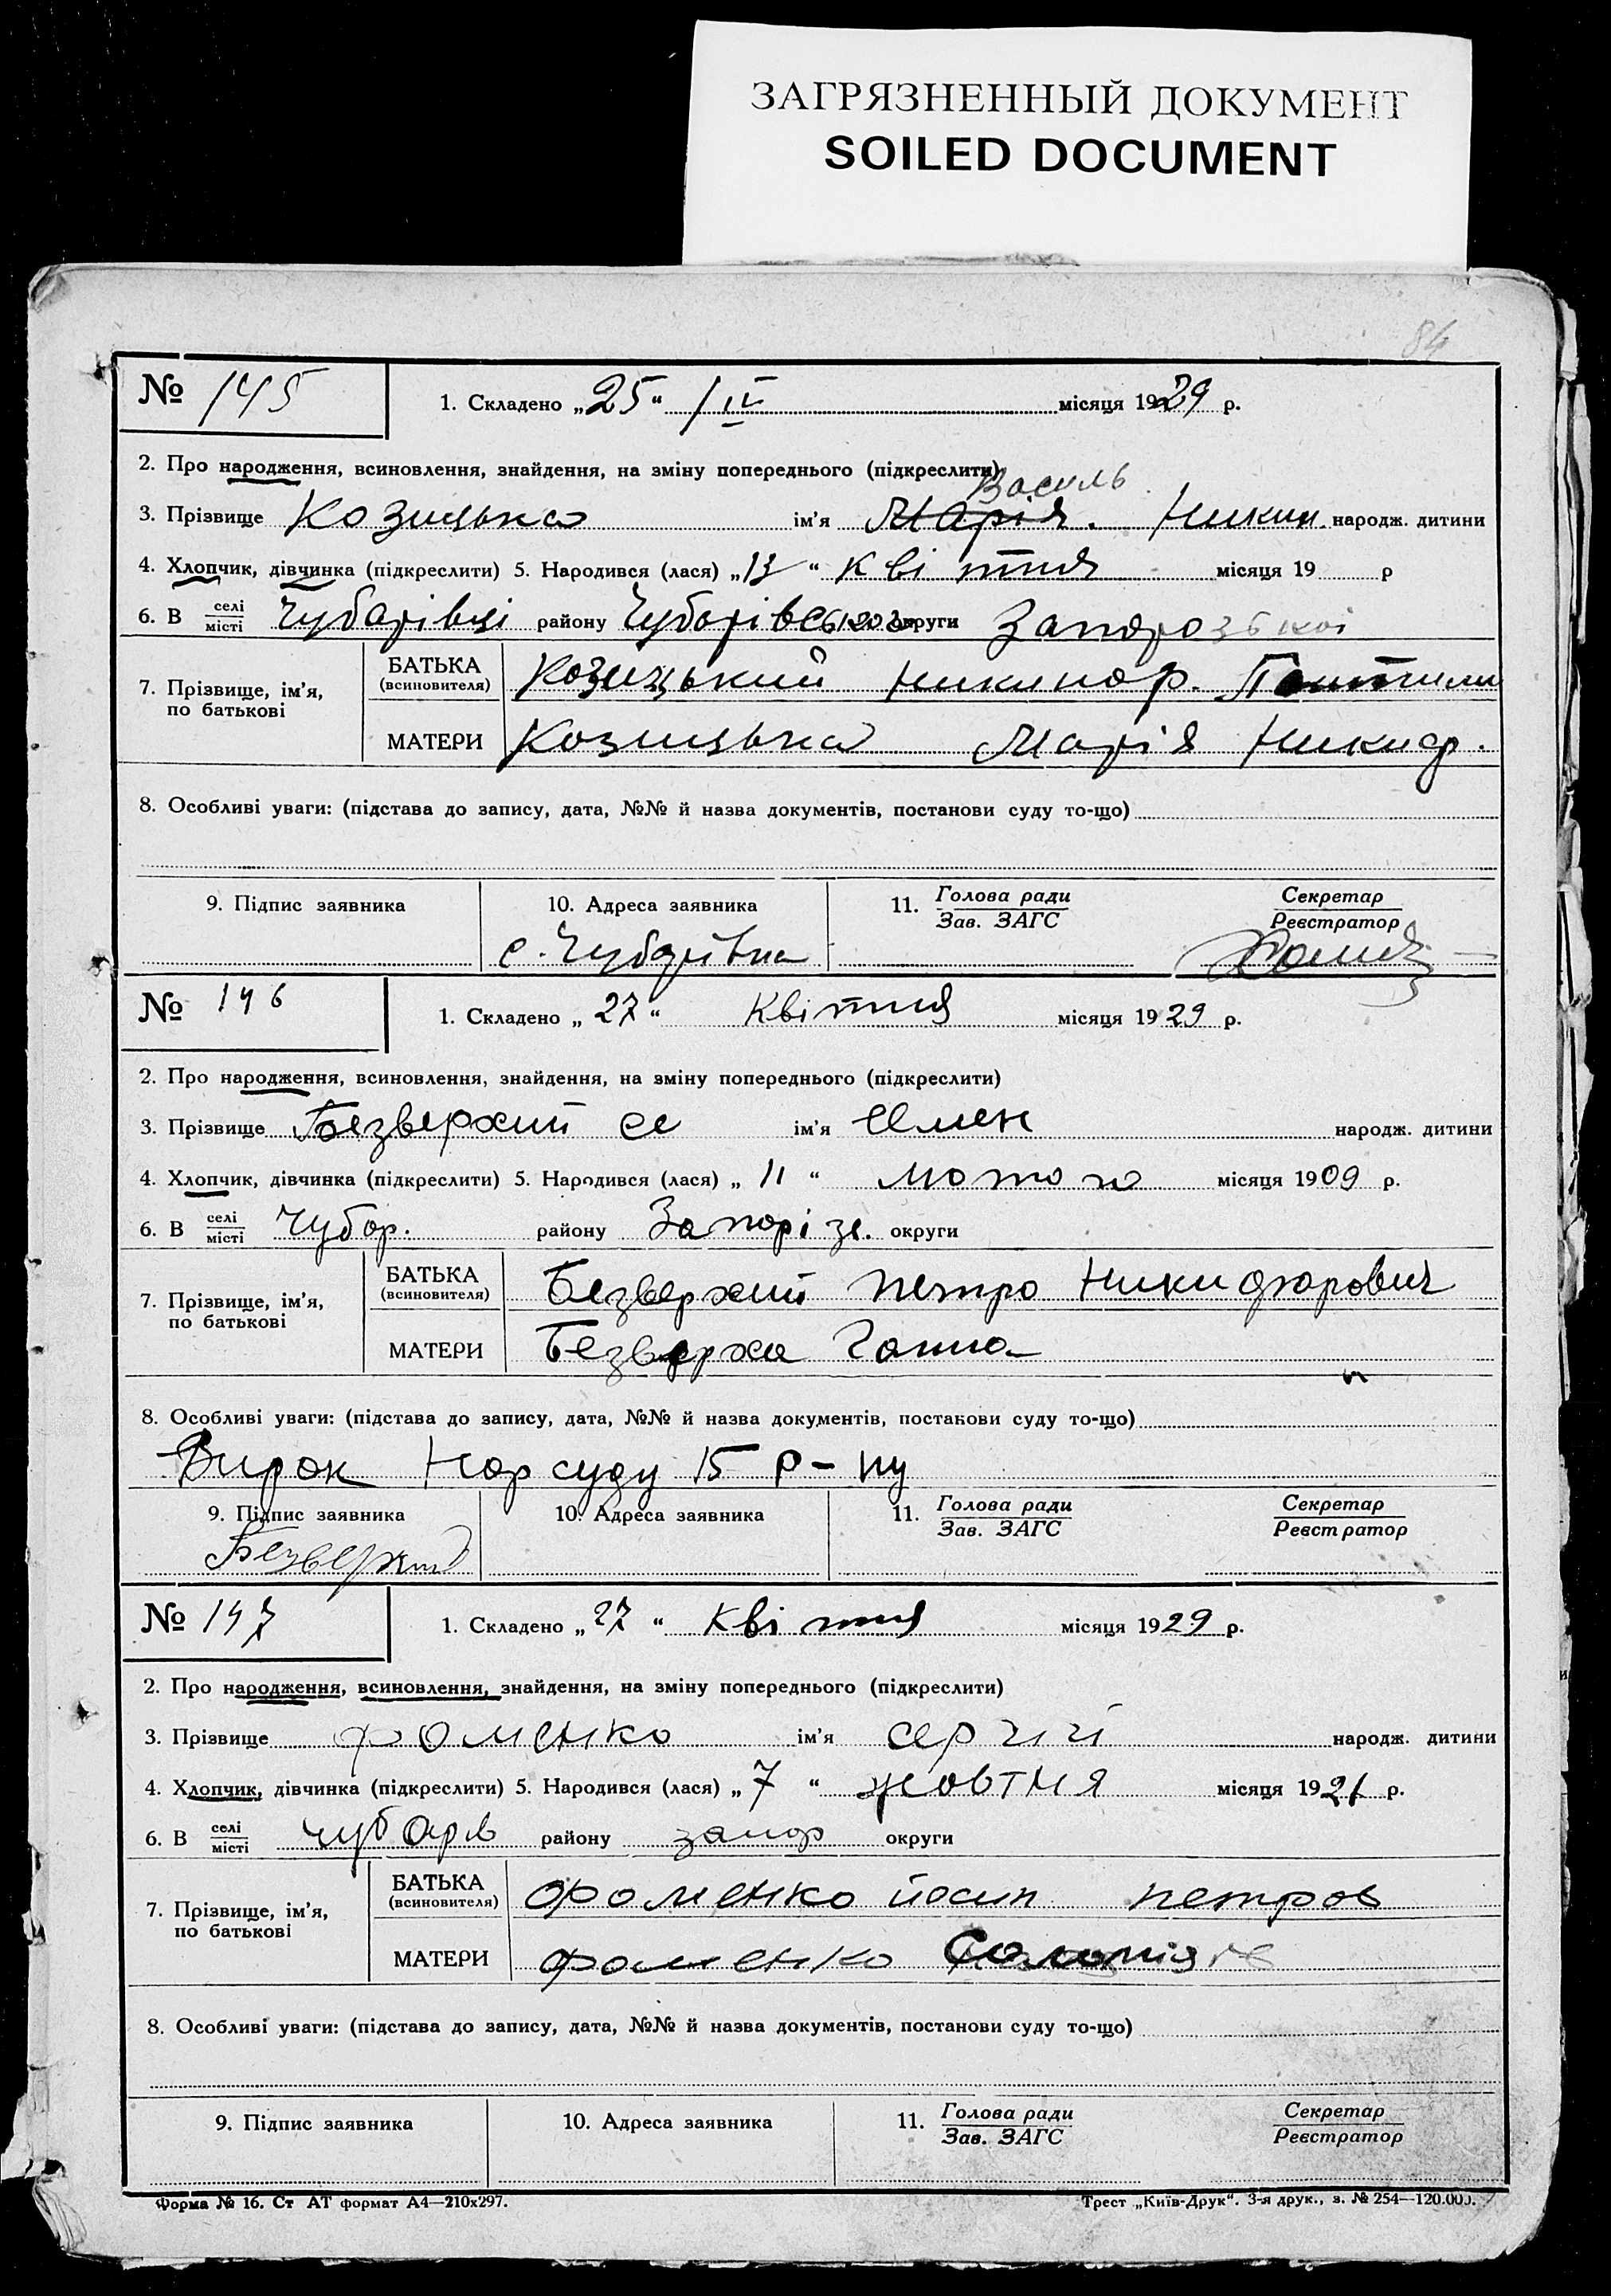 ЗАГРЯЗНЕННЫЙ ДОКУМЕНТ
SOILED DOCUMENT
84
№ 145 1. Складено „25“ /IV місяця 1929 р.
2. Про народження, всиновлення, знайдення, на зміну попереднього (підкреслити)
Василь
3. Прізвище Козицька ім’я Марія. Никин. народж. дитини
4. Хлопчик, дівчинка (підкреслити) 5. Народився (лася) „13“ квітня місяця 19 р
6. В селі/місті Чубарівці району Чубарівського округи Запорозькоі
7. Прізвище, ім’я, по батькові
БАТЬКА (всиновителя) Козицький Никинор.
МАТЕРИ Козицька Марія Никиф.
8. Особливі уваги: (підстава до запису, дата, №№ й назва документів, постанови суду то-що)
9. Підпис заявника 10. Адреса заявника 11. Голова ради/Зав. ЗАГС Секретар/Реєстратор
с. Чубарівка
№ 146 1. Складено „27“ Квітня місяця 1929 р.
2. Про народження, всиновлення, знайдення, на зміну попереднього (підкреслити)
3. Прізвище Безверхий ім’я народж. дитини
4. Хлопчик, дівчинка (підкреслити) 5. Народився (лася) „11“ лютого місяця 1909 р.
6. В селі/місті Чубар. району Запорізь. округи
7. Прізвище, ім’я, по батькові
БАТЬКА (всиновителя) Безверхий Петро Никифорович
МАТЕРИ Безверха Ганна
8. Особливі уваги: (підстава до запису, дата, №№ й назва документів, постанови суду то-що)
Вирок Нарсуду 15 р-ну
9. Підпис заявника 10. Адреса заявника 11. Голова ради/Зав. ЗАГС Секретар/Реєстратор
Безверхий
№ 147 1. Складено „27“ Квітня місяця 1929 р.
2. Про народження, всиновлення, знайдення, на зміну попереднього (підкреслити)
3. Прізвище фоменко ім’я сергій народж. дитини
4. Хлопчик, дівчинка (підкреслити) 5. Народився (лася) „7“ жовтня місяця 1921 р.
6. В селі/місті чубарів району запор округи
7. Прізвище, ім’я, по батькові
БАТЬКА (всиновителя) фоменко йосип петров
МАТЕРИ фоменко Соломія
8. Особливі уваги: (підстава до запису, дата, №№ й назва документів, постанови суду то-що)
9. Підпис заявника 10. Адреса заявника 11. Голова ради/Зав. ЗАГС Секретар/Реєстратор
Форма № 16. Ст АТ формат А4—210х297. Трест „Київ-Друк“. 3-я друк., з. № 254—120.000.